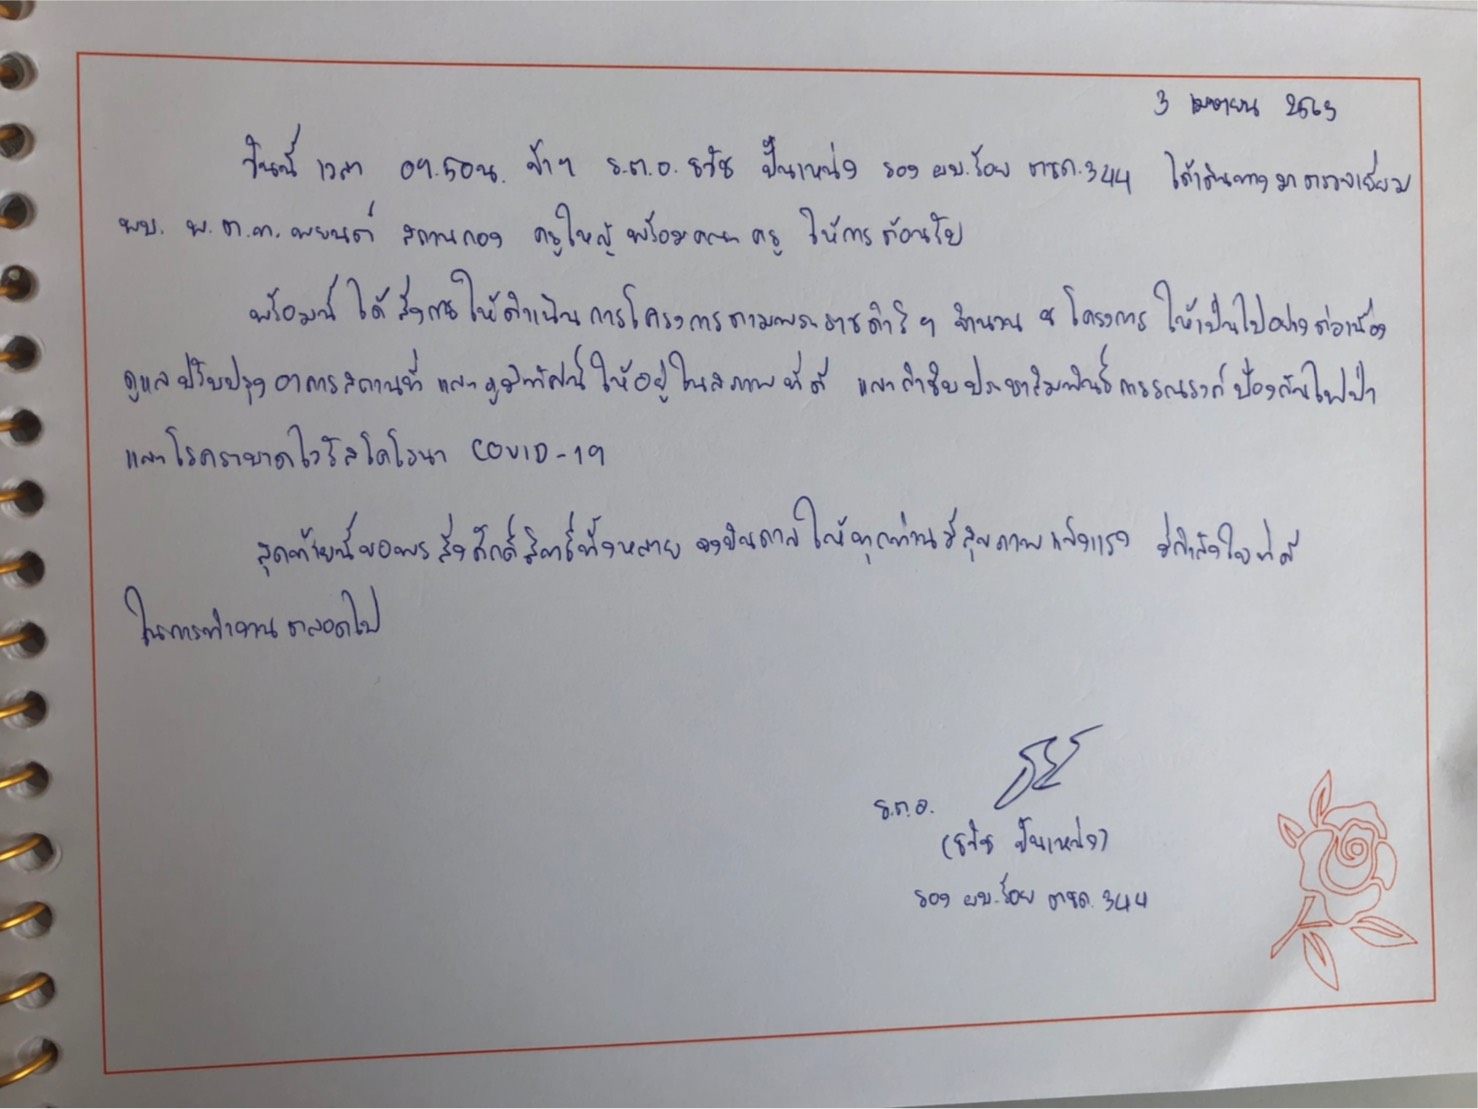 3 เมษายน 2563
วันนี้ เวลา 09.50น. ข้าฯ ร.ต.อ. ธวัช ปั๋นแหน่ง รอง ผบ.ร้อย ตชด.344 ได้เดินทางมาตรวจเยี่ยม
พบ. พ.ต.ท. พยนต์ สถานกอง ครูใหญ่ พร้อมคณะครู ให้การต้อนรับ
พร้อมนี้ ได้สั่งการให้ดำเนินการโครงการตามพระราชดำริฯ จำนวน 8 โครงการ ให้เป็นไปอย่างต่อเนื่อง
ดูแลปรับปรุงอาคารสถานที่ และภูมิทัศน์ ให้อยู่ในสภาพที่ดี และกำชับประชาสัมพันธ์การรณรงค์ป้องกันไฟป่า
และโรคระบาดไวรัสโคโรนา COVID-19
สุดท้ายนี้ขอพรสิ่งศักดิ์สิทธิ์ทั้งหลาย จงบันดาลให้ทุกท่านมีสุขภาพแข็งแรง มีกำลังใจที่ดี
ในการทำงานตลอดไป
ร.ต.อ.
(ธวัช ปั๋นแหน่ง)
รอง ผบ.ร้อย ตชด.344